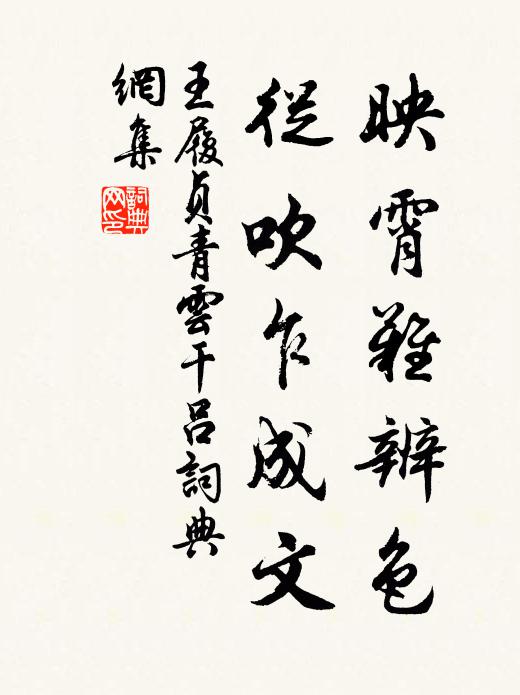 映霄難辨色
從吹乍成文
王履貞青雲干呂詞典
網集
詞典
网印